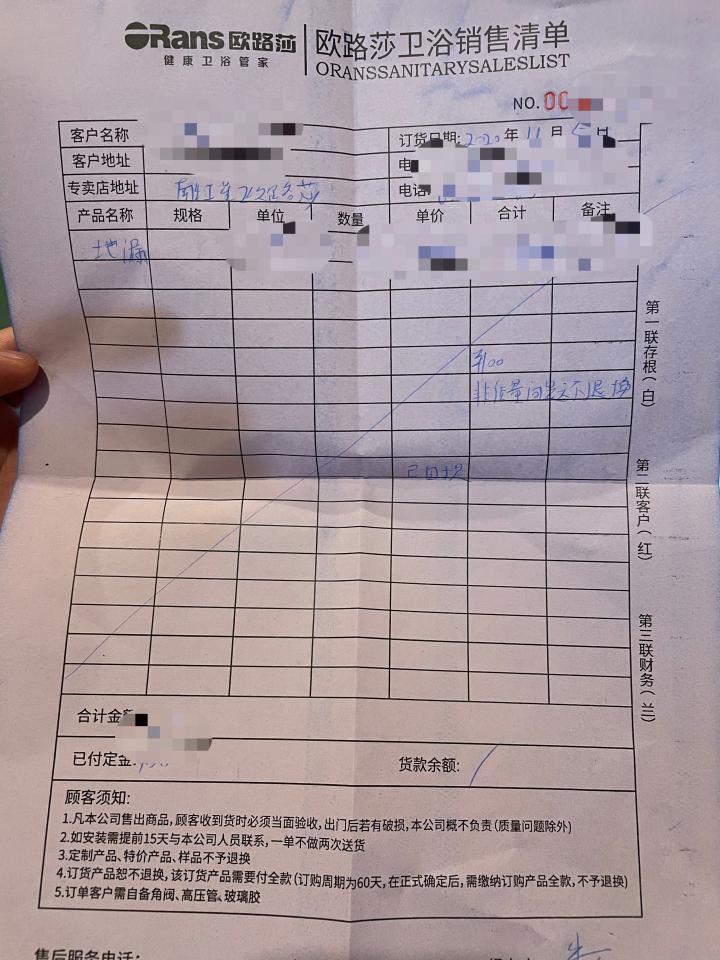 ORans 欧路莎 欧路莎卫浴销售清单
健康卫浴管家 ORANSSANITARYSALESLIST
NO. 00
客户名称 订货日期: 2020年11月 日
客户地址 电
专卖店地址 电话:
产品名称 规格 单位 数量 单价 合计 备注
地漏
第一联存根(白)
非质量问题不退换
第二联客户(红)
第三联财务(兰)
合计金额
已付定金: 货款余额:
顾客须知:
1.凡本公司售出商品,顾客收到货时必须当面验收,出门后若有破损,本公司概不负责(质量问题除外)
2.如安装需提前15天与本公司人员联系,一单不做两次送货
3.定制产品、特价产品、样品不予退换
4.订货产品恕不退换,该订货产品需要付全款(订购周期为60天,在正式确定后,需缴纳订购产品全款,不予退换)
5.订单客户需自备角阀、高压管、玻璃胶
售后服务电话: